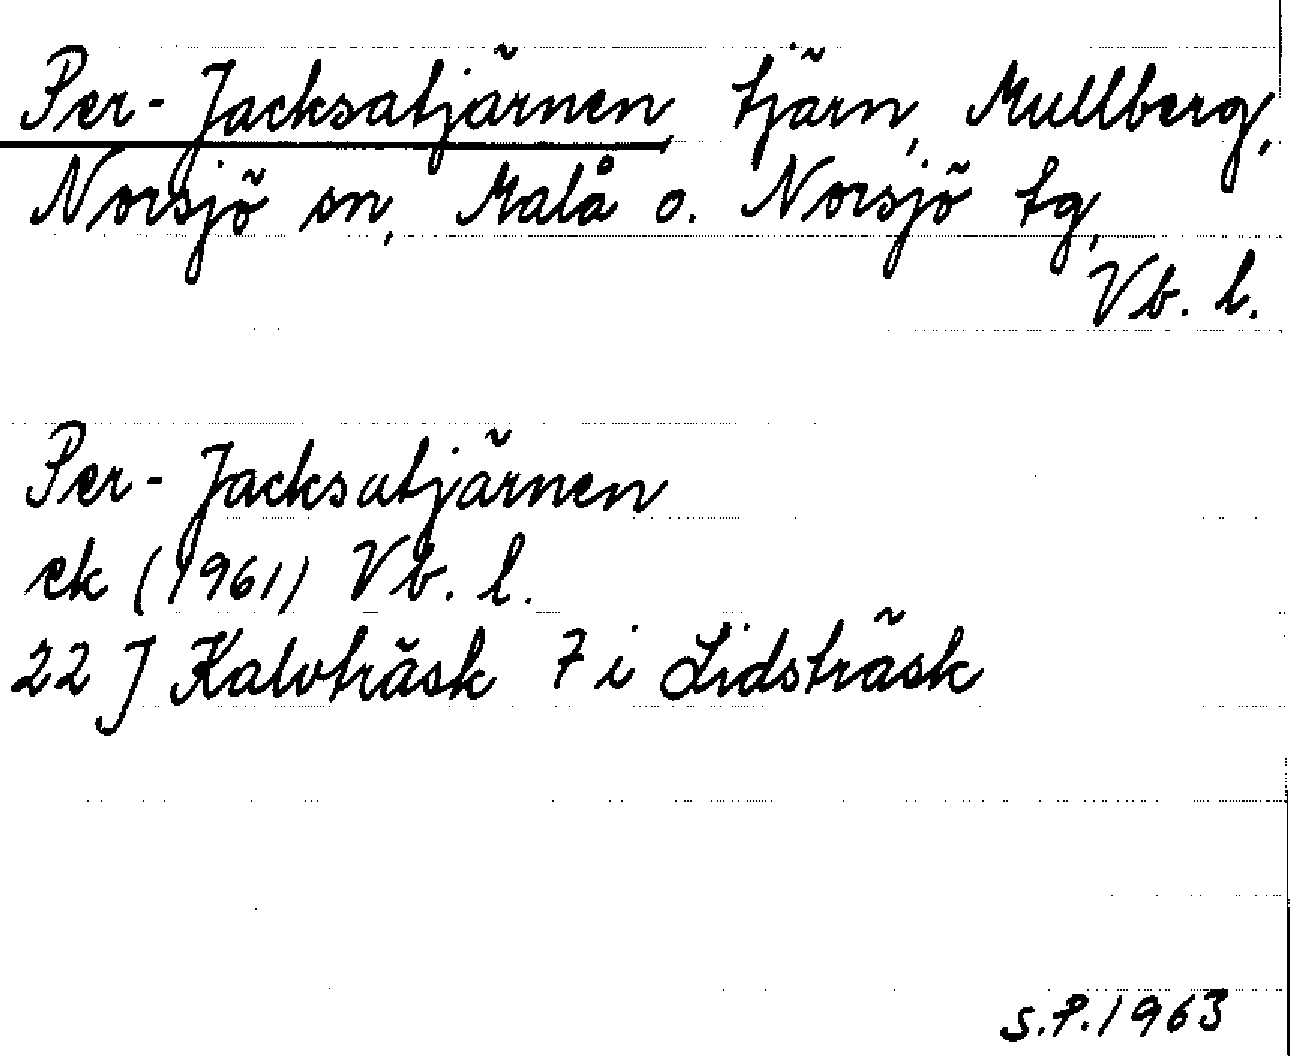 Per-Jacksatjärnen, tjärn, Mullberg,
Norsjö sn, Malå o. Norsjö tg,
Vb. l.
Per-Jacksatjärnen
ek (1961) Vb. l.
22 J Kalvträsk 7 i Lidsträsk
S.P. 1963